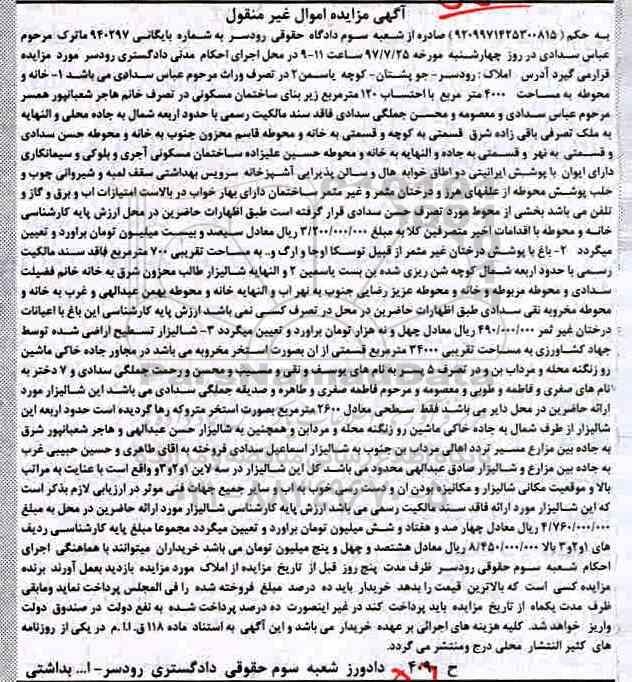 آگهی مزایده اموال غیر منقول
به حکم (۹۲۰۹۹۷۱۴۲۵۳۰۰۸۱۵) صادره از شعبه سوم دادگاه حقوقی رودسر به شماره بایگانی ۹۴۰۲۹۷ ماترک مرحوم
عباس سدادی در روز چهارشنبه مورخه ۹۷/۷/۲۵ ساعت ۱۱-۹ در محل اجرای احکام مدنی دادگستری رودسر مورد مزایده
قرار می گیرد آدرس املاک : رودسر- جو پشتان- کوچه یاسمن ۲ در تصرف وراث مرحوم عباس سدادی می باشد ۱- خانه و
محوطه به مساحت ۴۰۰۰ متر مربع با احتساب ۱۲۰ مترمربع زیر بنای ساختمان مسکونی در تصرف خانم هاجر شعبانپور همسر
مرحوم عباس سدادی و معصومه و محسن جملگی سدادی فاقد سند مالکیت رسمی با حدود اربعه شمال به جاده محلی و النهایه
به ملک تصرفی باقی زاده شرق قسمتی به کوچه و قسمتی به خانه و محوطه قاسم محزون جنوب به خانه و محوطه حسن سدادی
و قسمتی به نهر و قسمتی به جاده و النهایه به خانه و محوطه حسین علیزاده ساختمان مسکونی آجری و بلوکی و سیمانکاری
دارای ایوان با پوشش ایرانیتی دو اطاق خوابه هال و سالن پذیرایی آشپزخانه سرویس بهداشتی سقف لمبه و شیروانی چوب و
حلب پوشش محوطه از علفهای هرز و درختان مثمر و غیر مثمر ساختمان دارای بهار خواب در بالاست امتیازات اب و برق و گاز و
تلفن می باشد بخشی از محوط مورد تصرف حسن سدادی قرار گرفته است طبق اظهارات حاضرین در محل ارزش پایه کارشناسی
خانه و محوطه با اقدامات اخیر متصرفین کلا به مبلغ ۳/۲۰۰/۰۰۰/۰۰۰ ریال معادل سیصد و بیست میلیون تومان براورد و تعیین
میگردد ۲- باغ با پوشش درختان غیر مثمر از قبیل توسکا اوجا و ارگ و.. به مساحت تقریبی ۷۰۰ مترمربع فاقد سند مالکیت
رسمی با حدود اربعه شمال کوچه شن ریزی شده بن بست یاسمین ۲ و النهایه شالیزار طالب محزون شرق به خانه خانم فضیلت
سدادی و محوطه مربوطه و خانه و محوطه عزیز رضایی جنوب به نهر اب و النهایه خانه و محوطه بهمن عبدالهی و غرب به خانه و
محوطه مخروبه نقی سدادی طبق اظهارات حاضرین در محل در تصرف کسی نمی باشد ارزش پایه کارشناسی این باغ با اعیانات
درختان غیر ثمر ۴۹۰/۰۰۰/۰۰۰ ریال معادل چهل و نه هزار تومان براورد و تعیین میگردد ۳- شالیزار تسطیح اراضی شده توسط
جهاد کشاورزی به مساحت تقریبی ۳۴۰۰۰ مترمربع قسمتی از ان بصورت استخر مخروبه می باشد در مجاور جاده خاکی ماشین
رو زنگنه محله و مرداب بن و در تصرف ۵ پسر به نام های یوسف و تقی و مسیب و محسن و رحمت جملگی سدادی و ۷ دختر به
نام های صغری و فاطمه و طوبی و معصومه و مرحوم فاطمه صغری و طاهره و صدیقه جملگی سدادی می باشد این شالیزار مورد
ارائه حاضرین در محل دایر می باشد فقط سطحی معادل ۲۶۰۰ مترمربع بصورت استخر متروکه رها گردیده است حدود اربعه این
شالیزار از طرف شمال به جاده خاکی ماشین رو زنگنه محله و مردابن و همچنین به شالیزار حسن عبدالهی و هاجر شعبانپور شرق
به جاده بین مزارع مسیر تردد اهالی مرداب بن جنوب به شالیزار اسماعیل سدادی فروخته به اقای طاهری و حسین حبیبی غرب
به جاده بین مزارع و شالیزار صادق عبدالهی محدود می باشد کل این شالیزار در سه لاین ۱و۲و۳ واقع است با عنایت به مراتب
بالا و موقعیت مکانی شالیزار و مکانیزه بودن ان و حد نصاب خوب به اب و... در جمیع جهات فنی موثر در ارزیابی لازم بذکر است
که این شالیزار مورد ارائه فاقد سند مالکیت رسمی می باشد ارزش پایه کارشناسی شالیزار مورد ارائه حاضرین در محل به مبلغ
۴/۷۶۰/۰۰۰/۰۰۰ ریال معادل چهار صد و هفتاد و شش میلیون تومان براورد و تعیین میگردد مجموعا مبلغ پایه کارشناسی ردیف
های ۱و۲و۳ بالا ۸/۴۵۰/۰۰۰/۰۰۰ ریال معادل هشتصد و چهل و پنج میلیون تومان می باشد خریداران میتوانند با هماهنگی اجرای
احکام شعبه سوم حقوقی رودسر ظرف مدت پنج روز قبل از تاریخ مزایده از املاک مورد مزایده بازدید بعمل آورند برنده
مزایده کسی است که بالاترین قیمت را بدهد خریدار باید ده درصد مبلغ فروخته شده را فی المجلس پرداخت نماید ومابقی
ظرف مدت یکماه از تاریخ مزایده باید پرداخت کند در غیر اینصورت ده درصد پرداخت شده به نفع دولت در صندوق دولت
واریز خواهد شد. کلیه هزینه های اجرائی بر عهده خریدار می باشد و این آگهی به استناد ماده ۱۱۸ ق.ا.ا.م در یکی از روزنامه
های کثیر النتشار محلی درج ومنتشر می گردد.
ح ۴۰۹ دادورز شعبه سوم حقوقی دادگستری رودسر- ا... بداشتی